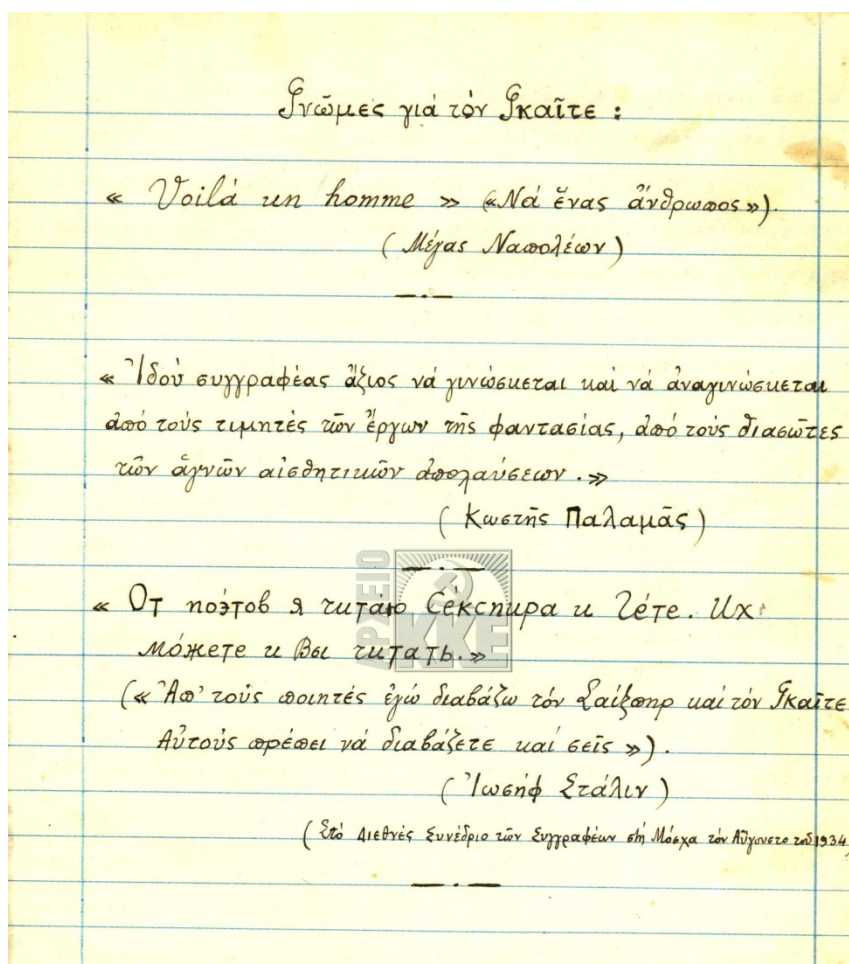 Γνῶμες γιά τόν Γκαῖτε :
« Voilá un homme » («Νά ἕνας ἄνθρωπος»).
( Μέγας Ναπολέων )
« Ἰδού συγγραφέας ἄξιος νά γινώσκεται καί νά ἀναγινώσκεται
ἀπό τούς τιμητές τῶν ἔργων τῆς φαντασίας, ἀπό τούς θιασῶτες
τῶν ἁγνῶν αἰσθητικῶν ἀπολαύσεων .»
( Κωστῆς Παλαμᾶς )
ΑΡΧΕΙΟ
ΚΚΕ
« От поэ́тов я читáю Сéкспира и Гéте. Их
мóжете и Вы читать.»
(« Ἀπ' τούς ποιητές ἐγώ διαβάζω τόν Σαίξπηρ καί τόν Γκαῖτε
Αὐτούς πρέπει νά διαβάζετε καί σεῖς »).
( Ἰωσήφ Στάλιν )
( Στό Διεθνές Συνέδριο τῶν Συγγραφέων στή Μόσχα τόν Αὔγουστο τοῦ 1934